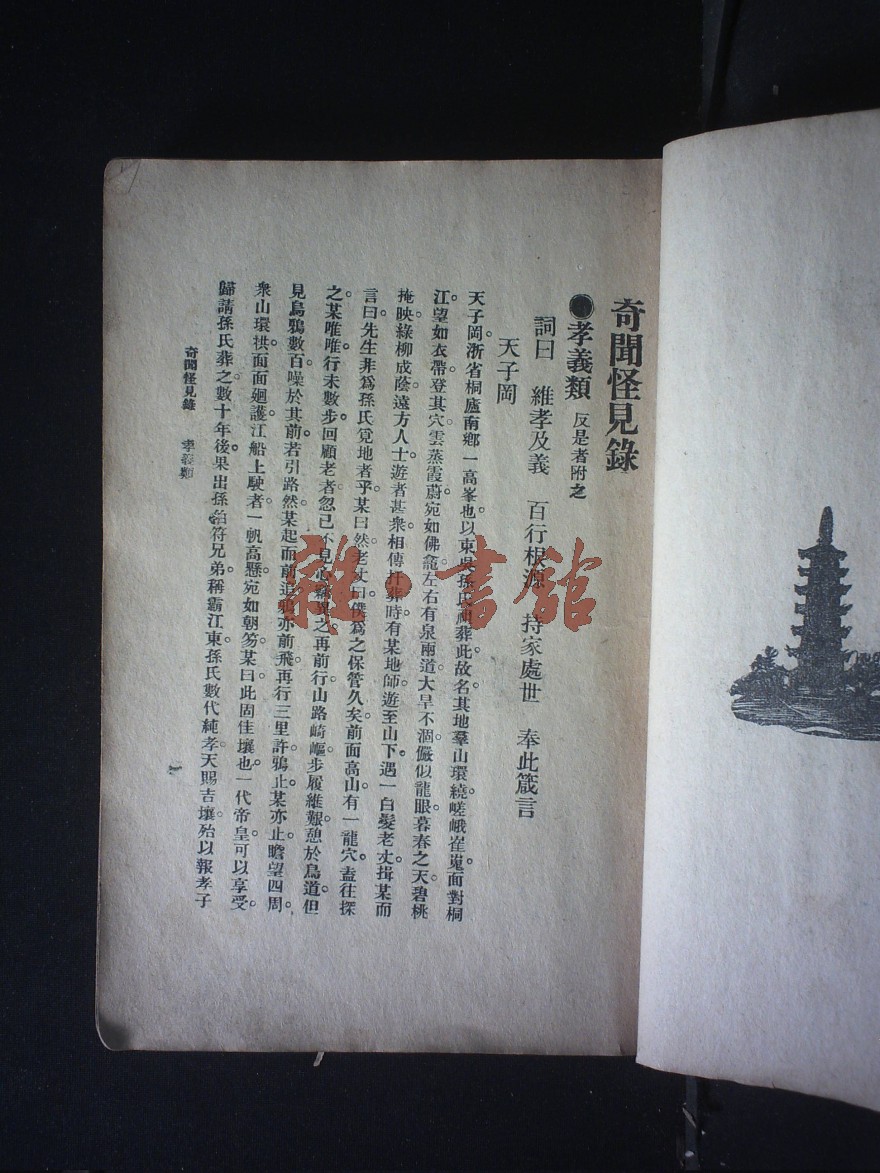 奇聞怪見錄
●孝義類 反是者附之
詞曰 維孝及義 百行根源 持家處世 奉此箴言
天子岡
天子岡浙省桐廬南鄉一高峯也以東吳孫氏祖葬此故名其地羣山環繞嵯峨崔嵬面對桐
江。望如衣帶登其穴雲蒸霞蔚宛如佛龕左右有泉兩道大旱不涸儼似龍眼暮春之天碧桃
掩映綠柳成蔭遠方人士遊者甚衆。相傳扦葬時有某地師遊至山下。遇一白髮老丈揖某而
言曰先生非爲孫氏覓地者乎。某曰然。老丈曰僕爲之保管久矣前面高山有一龍穴。盍往探
之。某唯唯。行未數步。回顧老者忽已不見。心竊異之。再前行山路崎嶇步履維艱憩於鳥道。但
見烏鴉數百噪於其前。若引路然。某起而前追鴉亦前飛。再行三里許鴉止。某亦止。瞻望四周。
衆山環拱面面廻護。江船上駛者。一帆高懸。宛如朝笏。某曰此固佳壤也。一代帝皇可以享受。
歸請孫氏葬之數十年後。果出孫伯符兄弟稱霸江東孫氏數代純孝天賜吉壤。殆以報孝子
奇聞怪見錄 孝義類
雜·書館